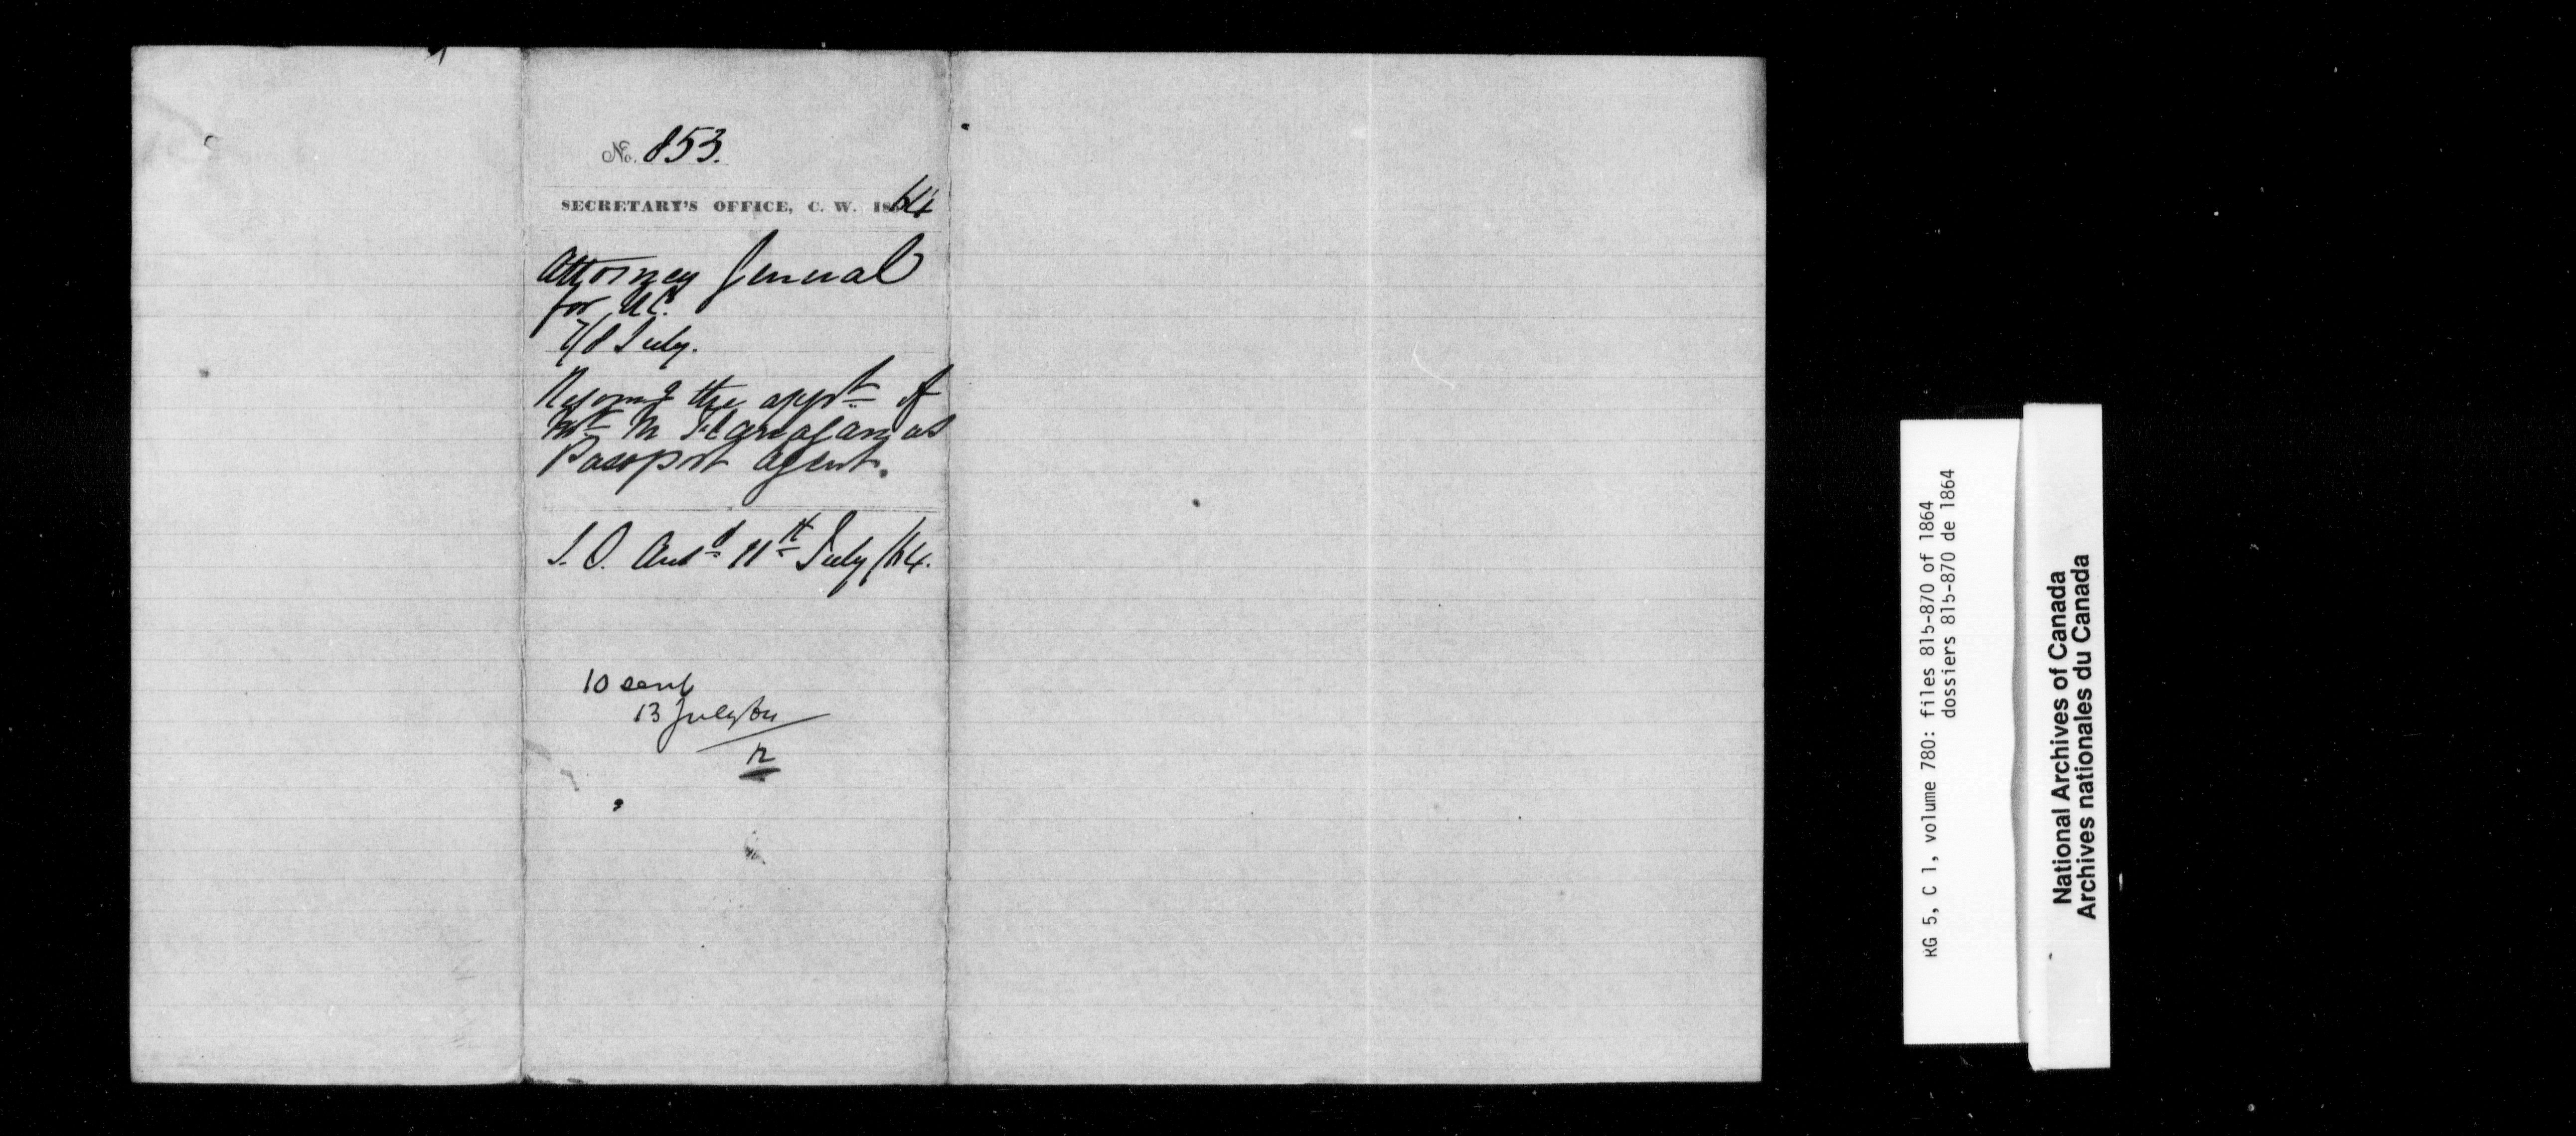 No. 853.
SECRETARY'S OFFICE, C. W. 1864
Attorney General
for U.C.
7/8 July.
the appt. of
Mr. M Flanagan as
Passport Agent.
S. O. Ansd. 11th July/64.
10 sent
13 July/64
RG 5, C 1, volume 780: files 815-870 of 1864
dossiers 815-870 de 1864
National Archives of Canada
Archives nationales du Canada